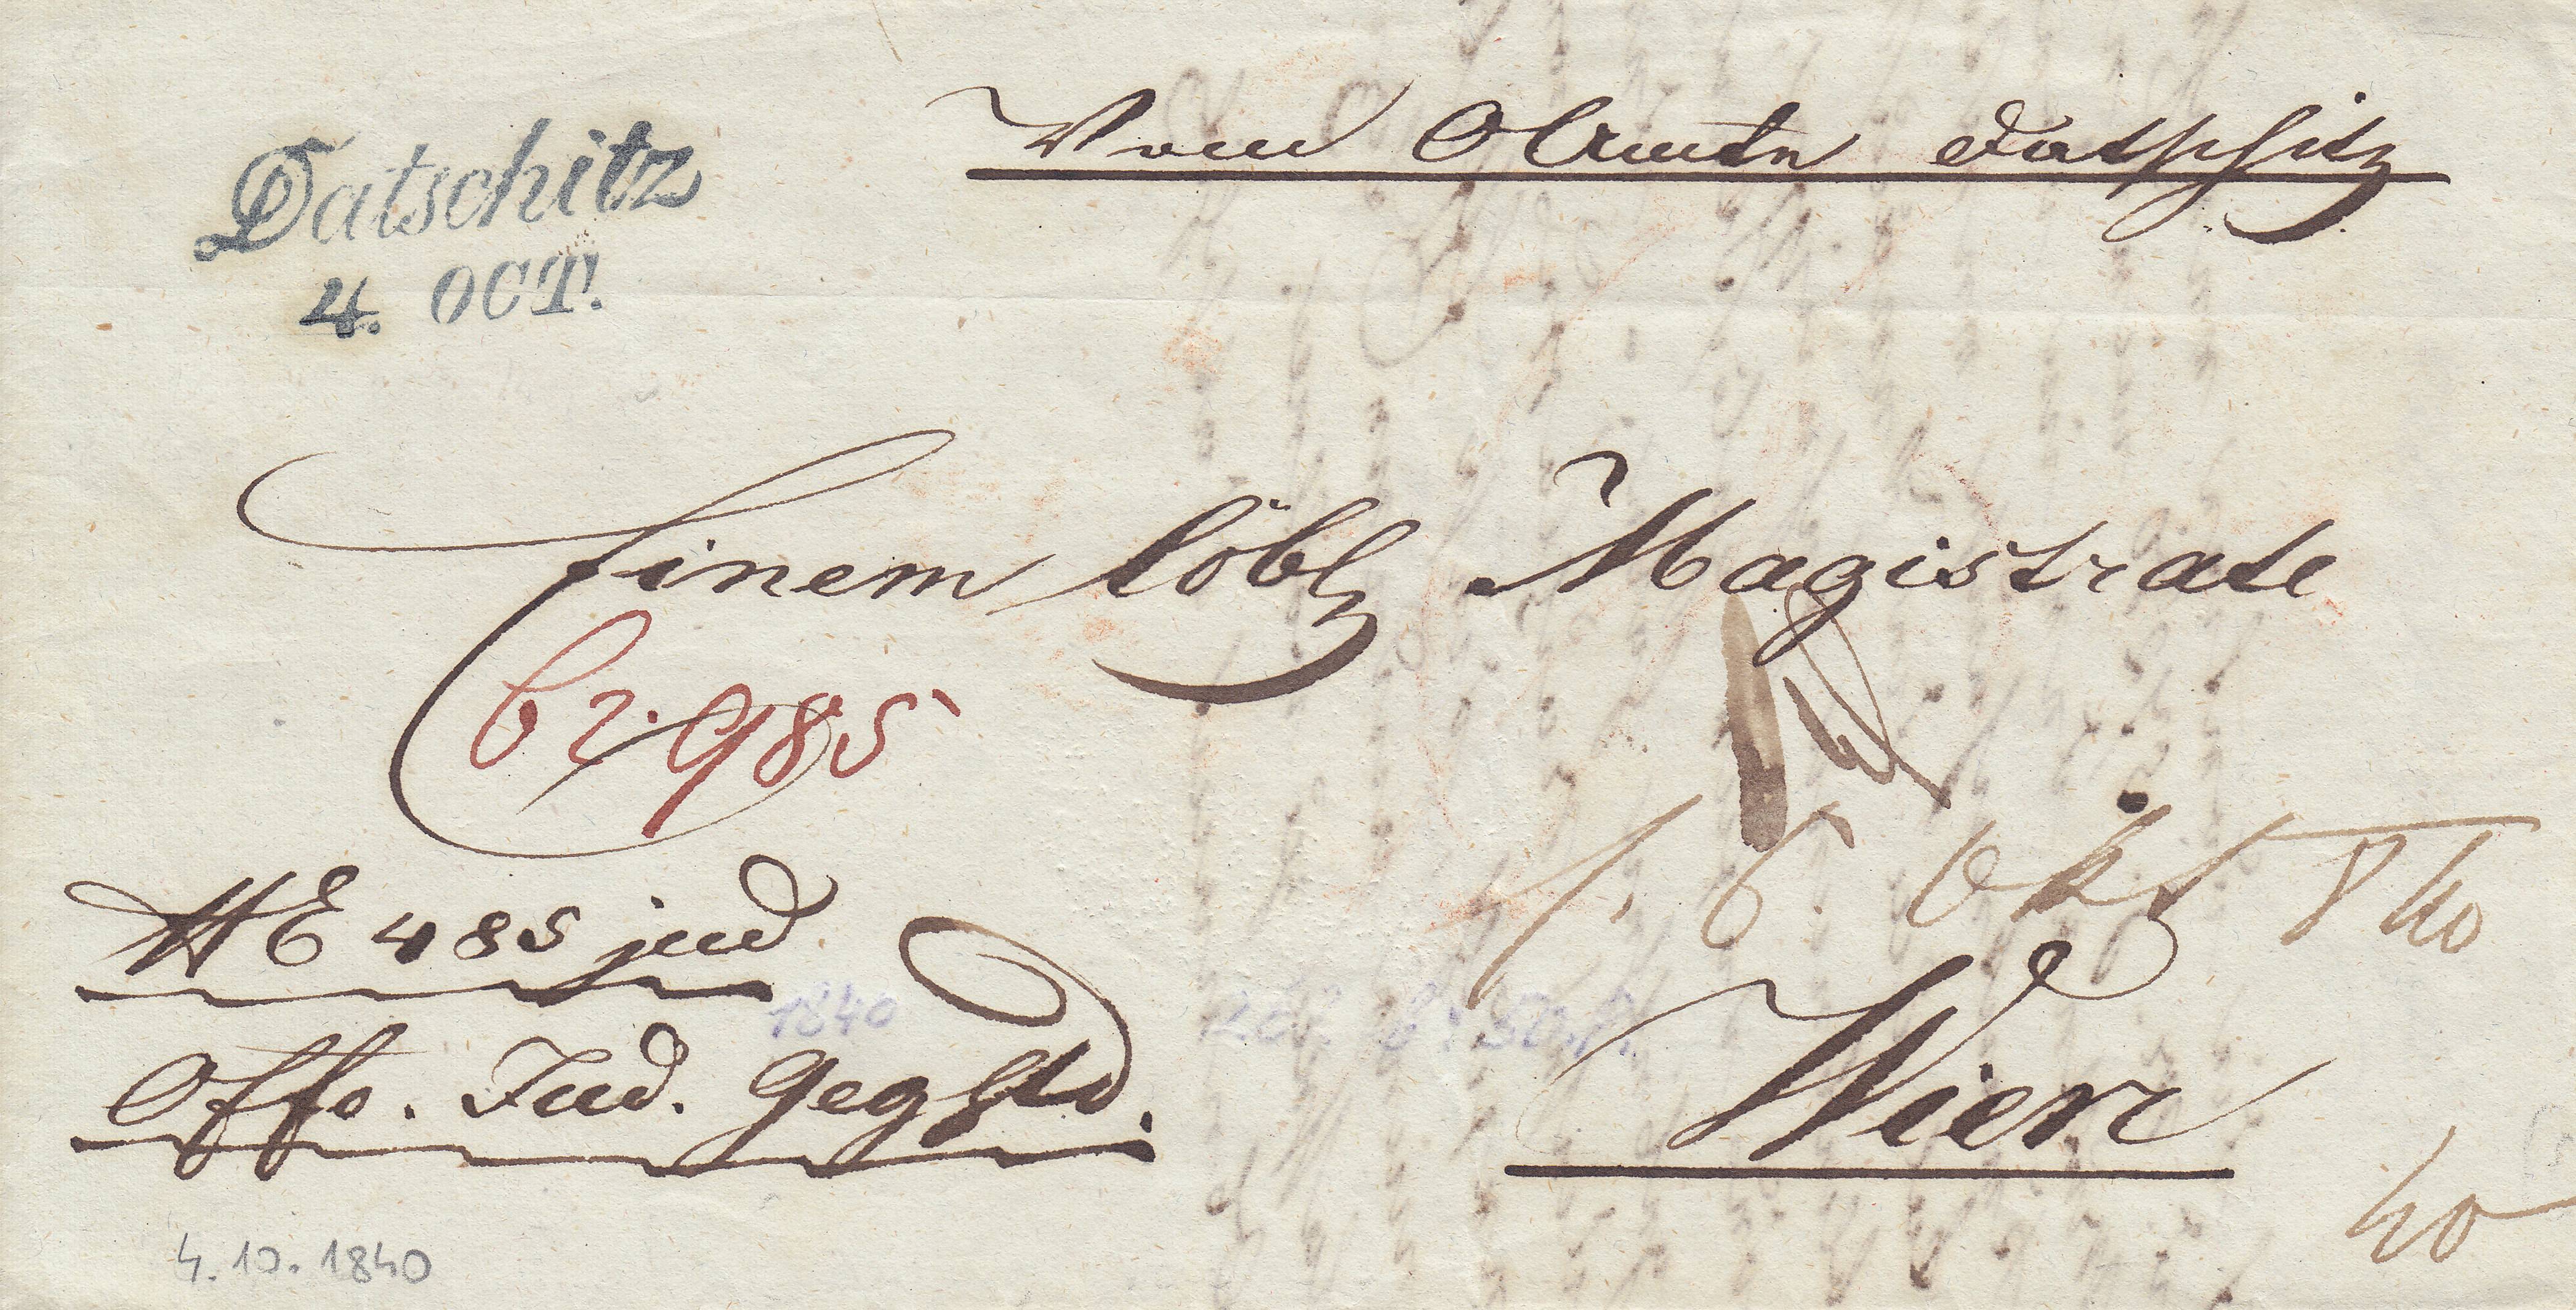 Datschitz
4. OCT.
Vom Oberamte Datschitz
Einem löbl Magistrate
985
NE 485 jud
6. Okt 840
1840
Wien
Offo. Jud. Ggstd.
40
4. 10. 1840